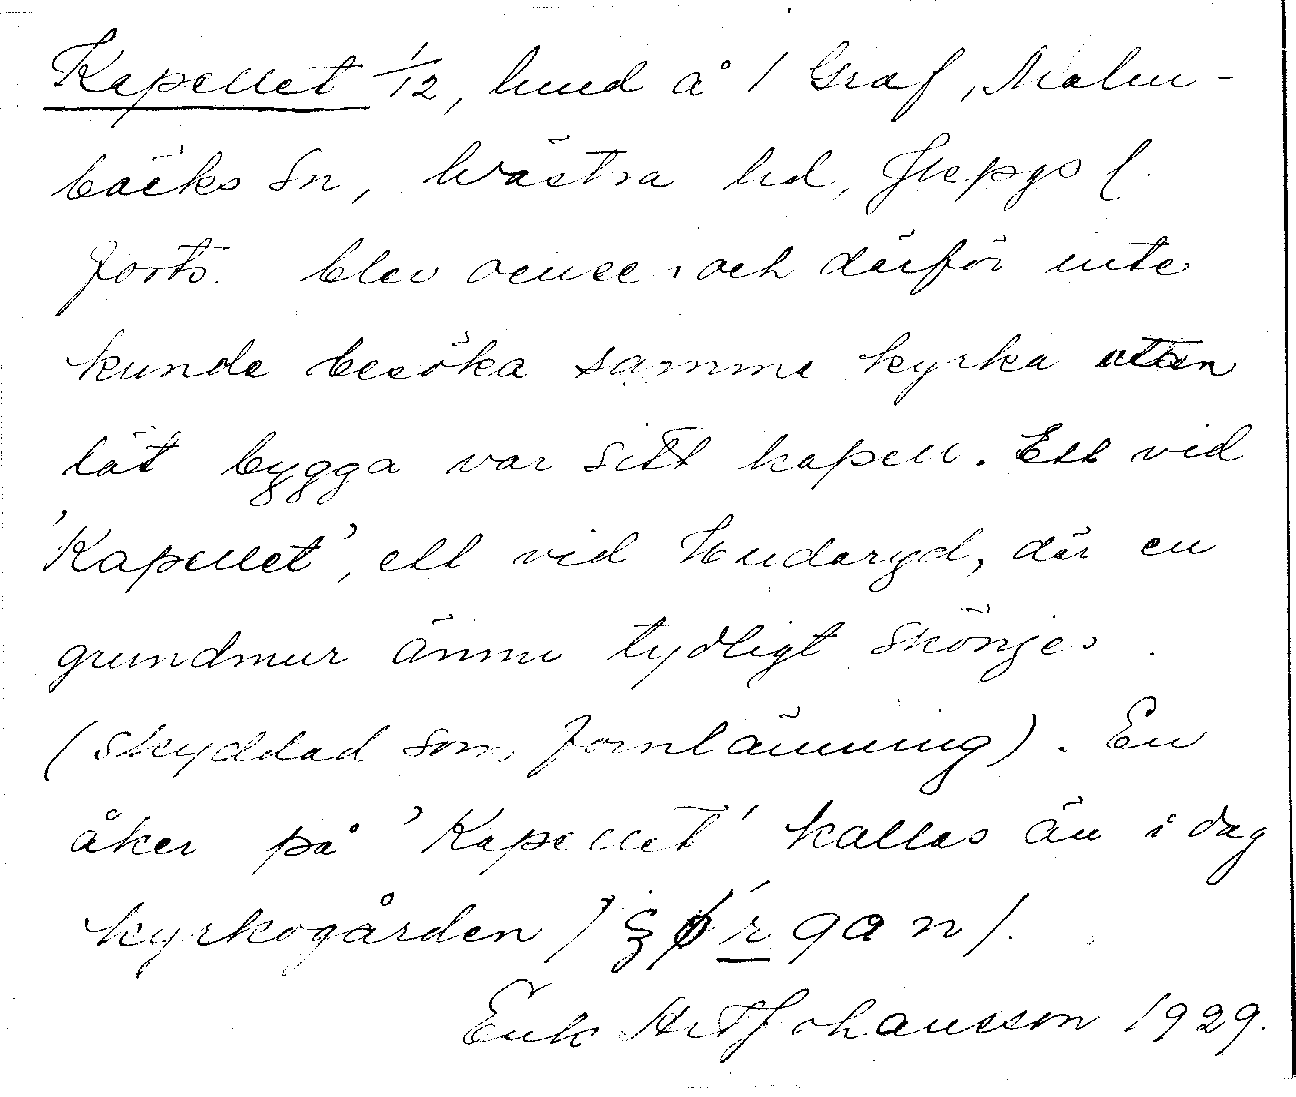 Kapellet 1/12, hmd å 1 Graf, Malm-
bäcks sn, Västra hd, Jkpgs l.
forts. blev ovänner och därför inte
kunde besöka samma kyrka utan
lät bygga var sitt kapell. Ett vid
'Kapellet', ett vid Hudaryd, där en
grundmur ännu tydligt skönjes.
(skyddad som fornlämning). En
åker på 'Kapellet' kallas än i dag
kyrkogården
Erik Johansson 1929.